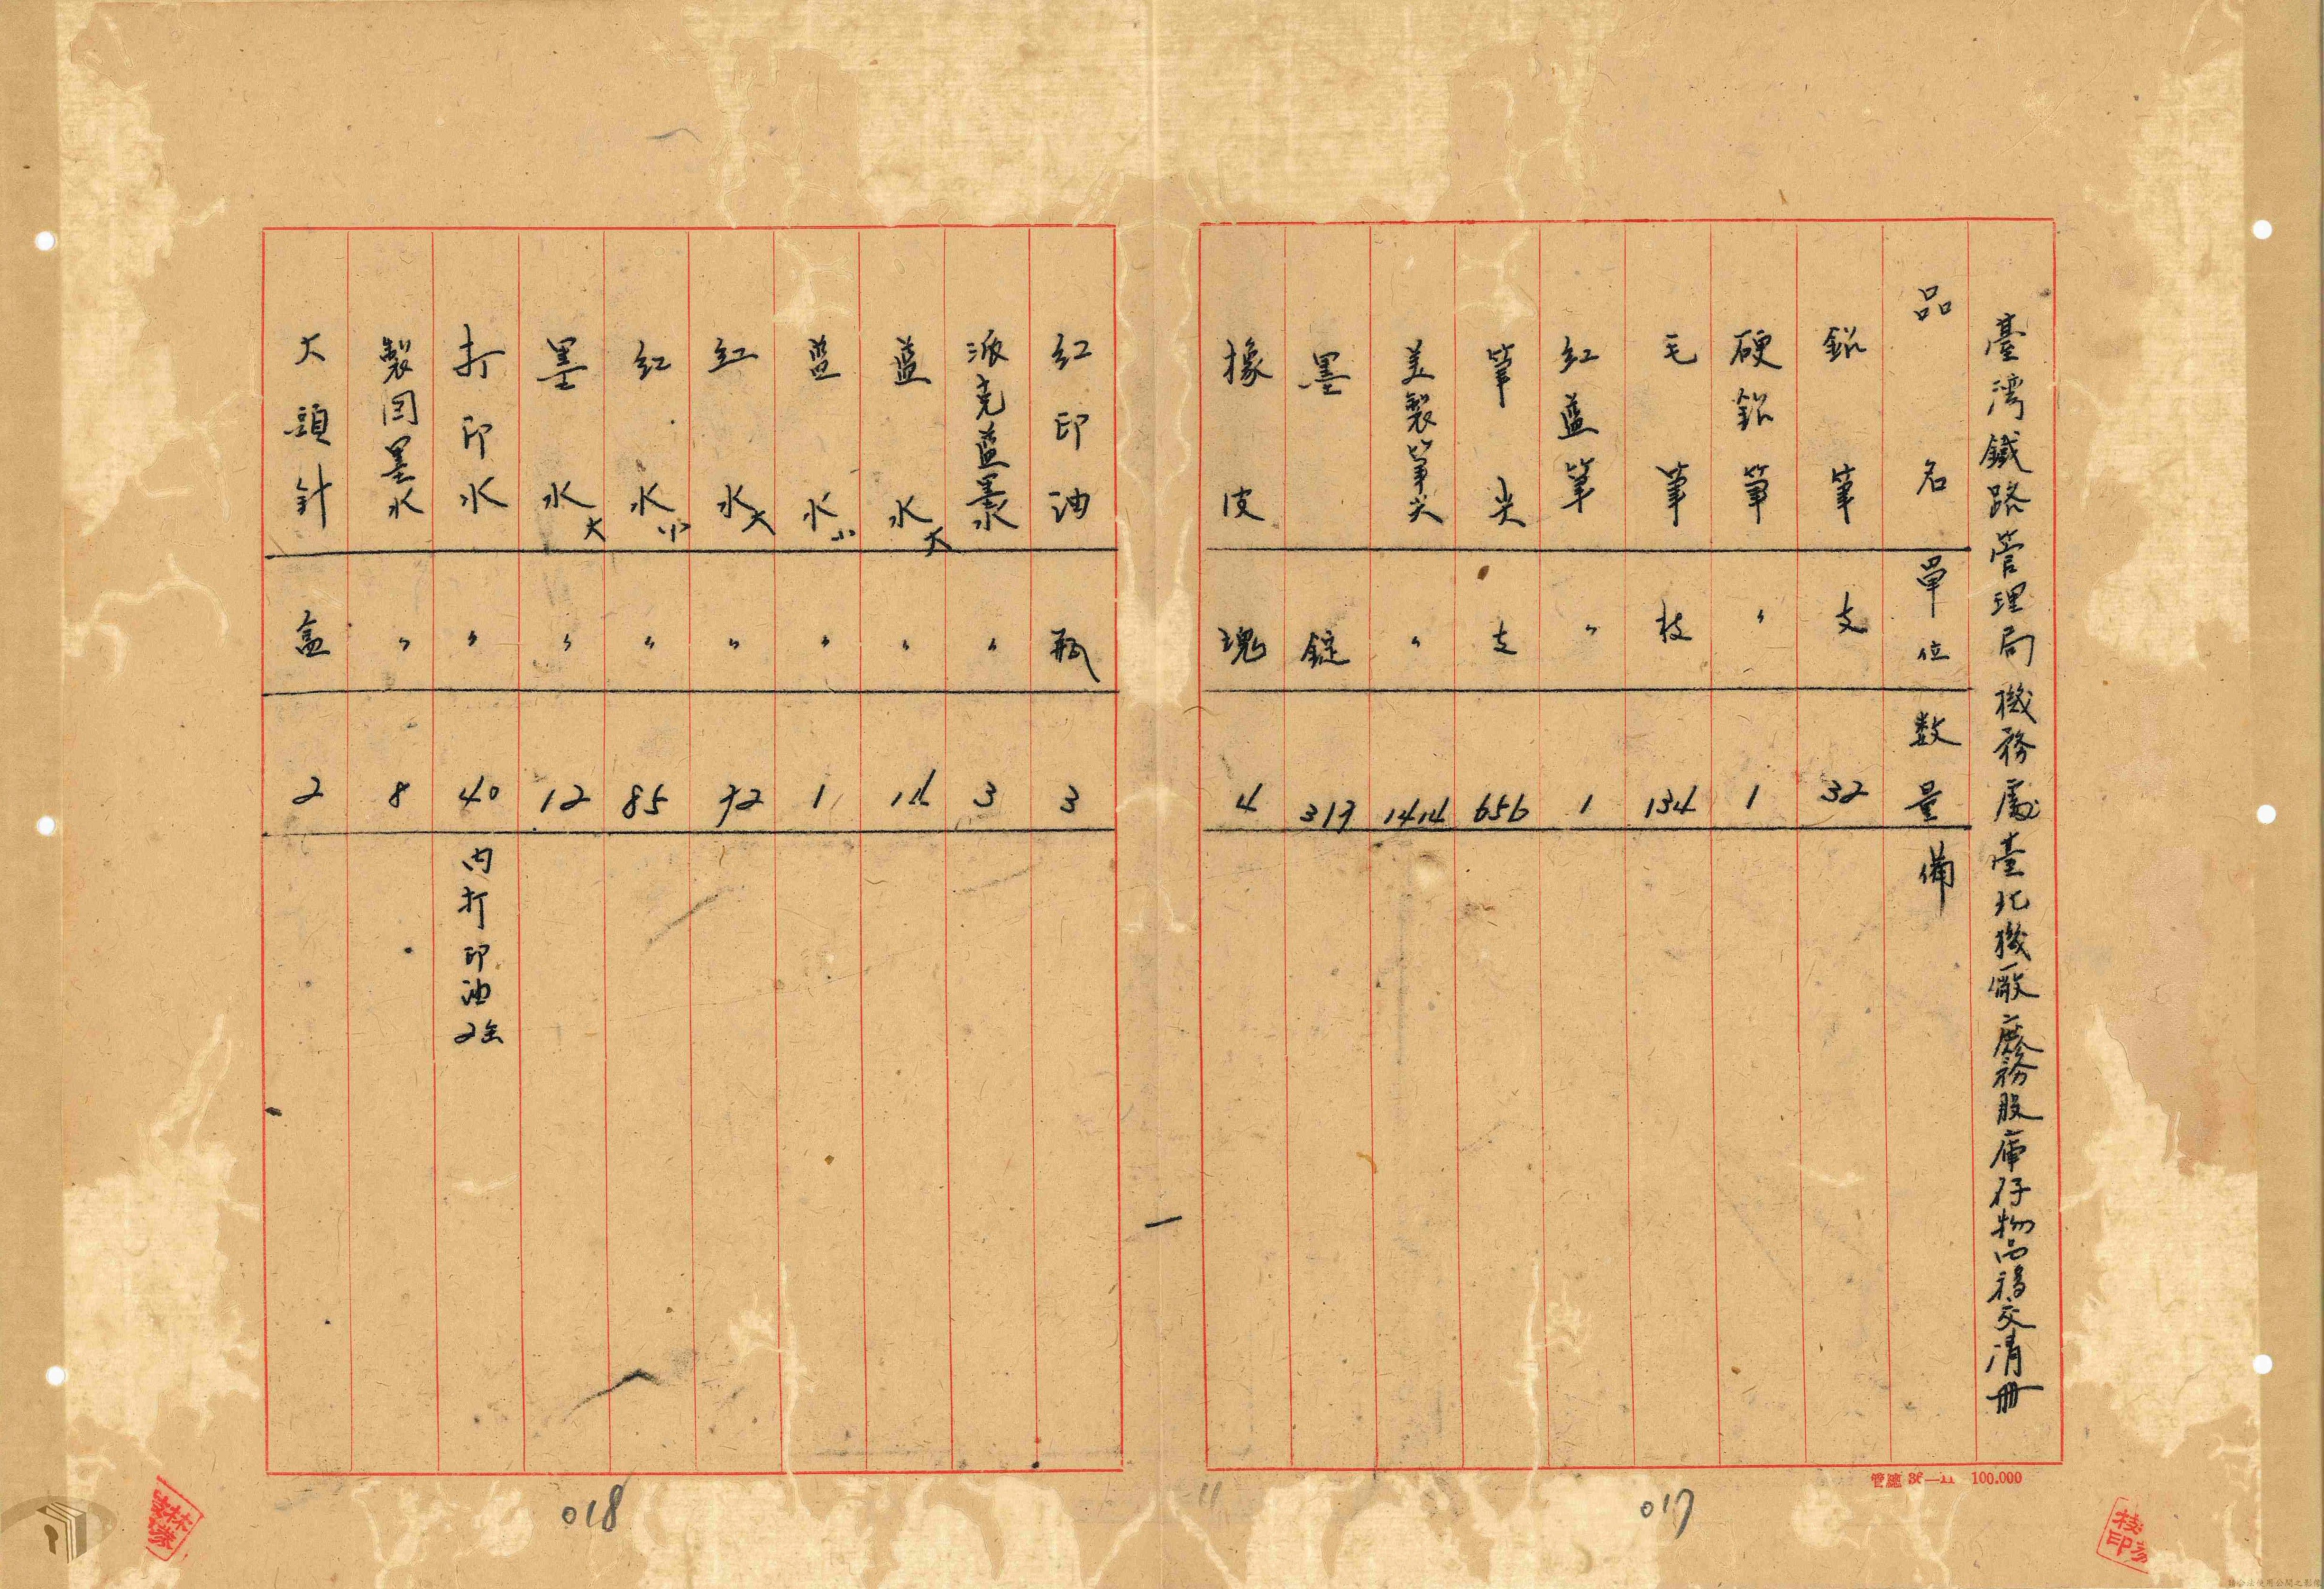 臺灣鐵路管理局機務處臺北機廠庶務股庫存物品移交清冊
品名 單位 数量 備
鉛筆 支 32
硬鉛筆 〃 1
毛筆 枝 134
红蓝筆 〃 1
筆尖 支 656
美製筆尖 〃 1414
墨 錠 317
橡皮 塊 4
红印油 瓶 3
派克蓝墨水 〃 3
蓝水大 〃 14
蓝水小 〃 1
红水大 〃 72
红水小 〃 85
墨水大 〃 12
打印水 〃 40 内打印油2缶
製図墨水 〃 8
大頭針 盒 2
100.000
017
018